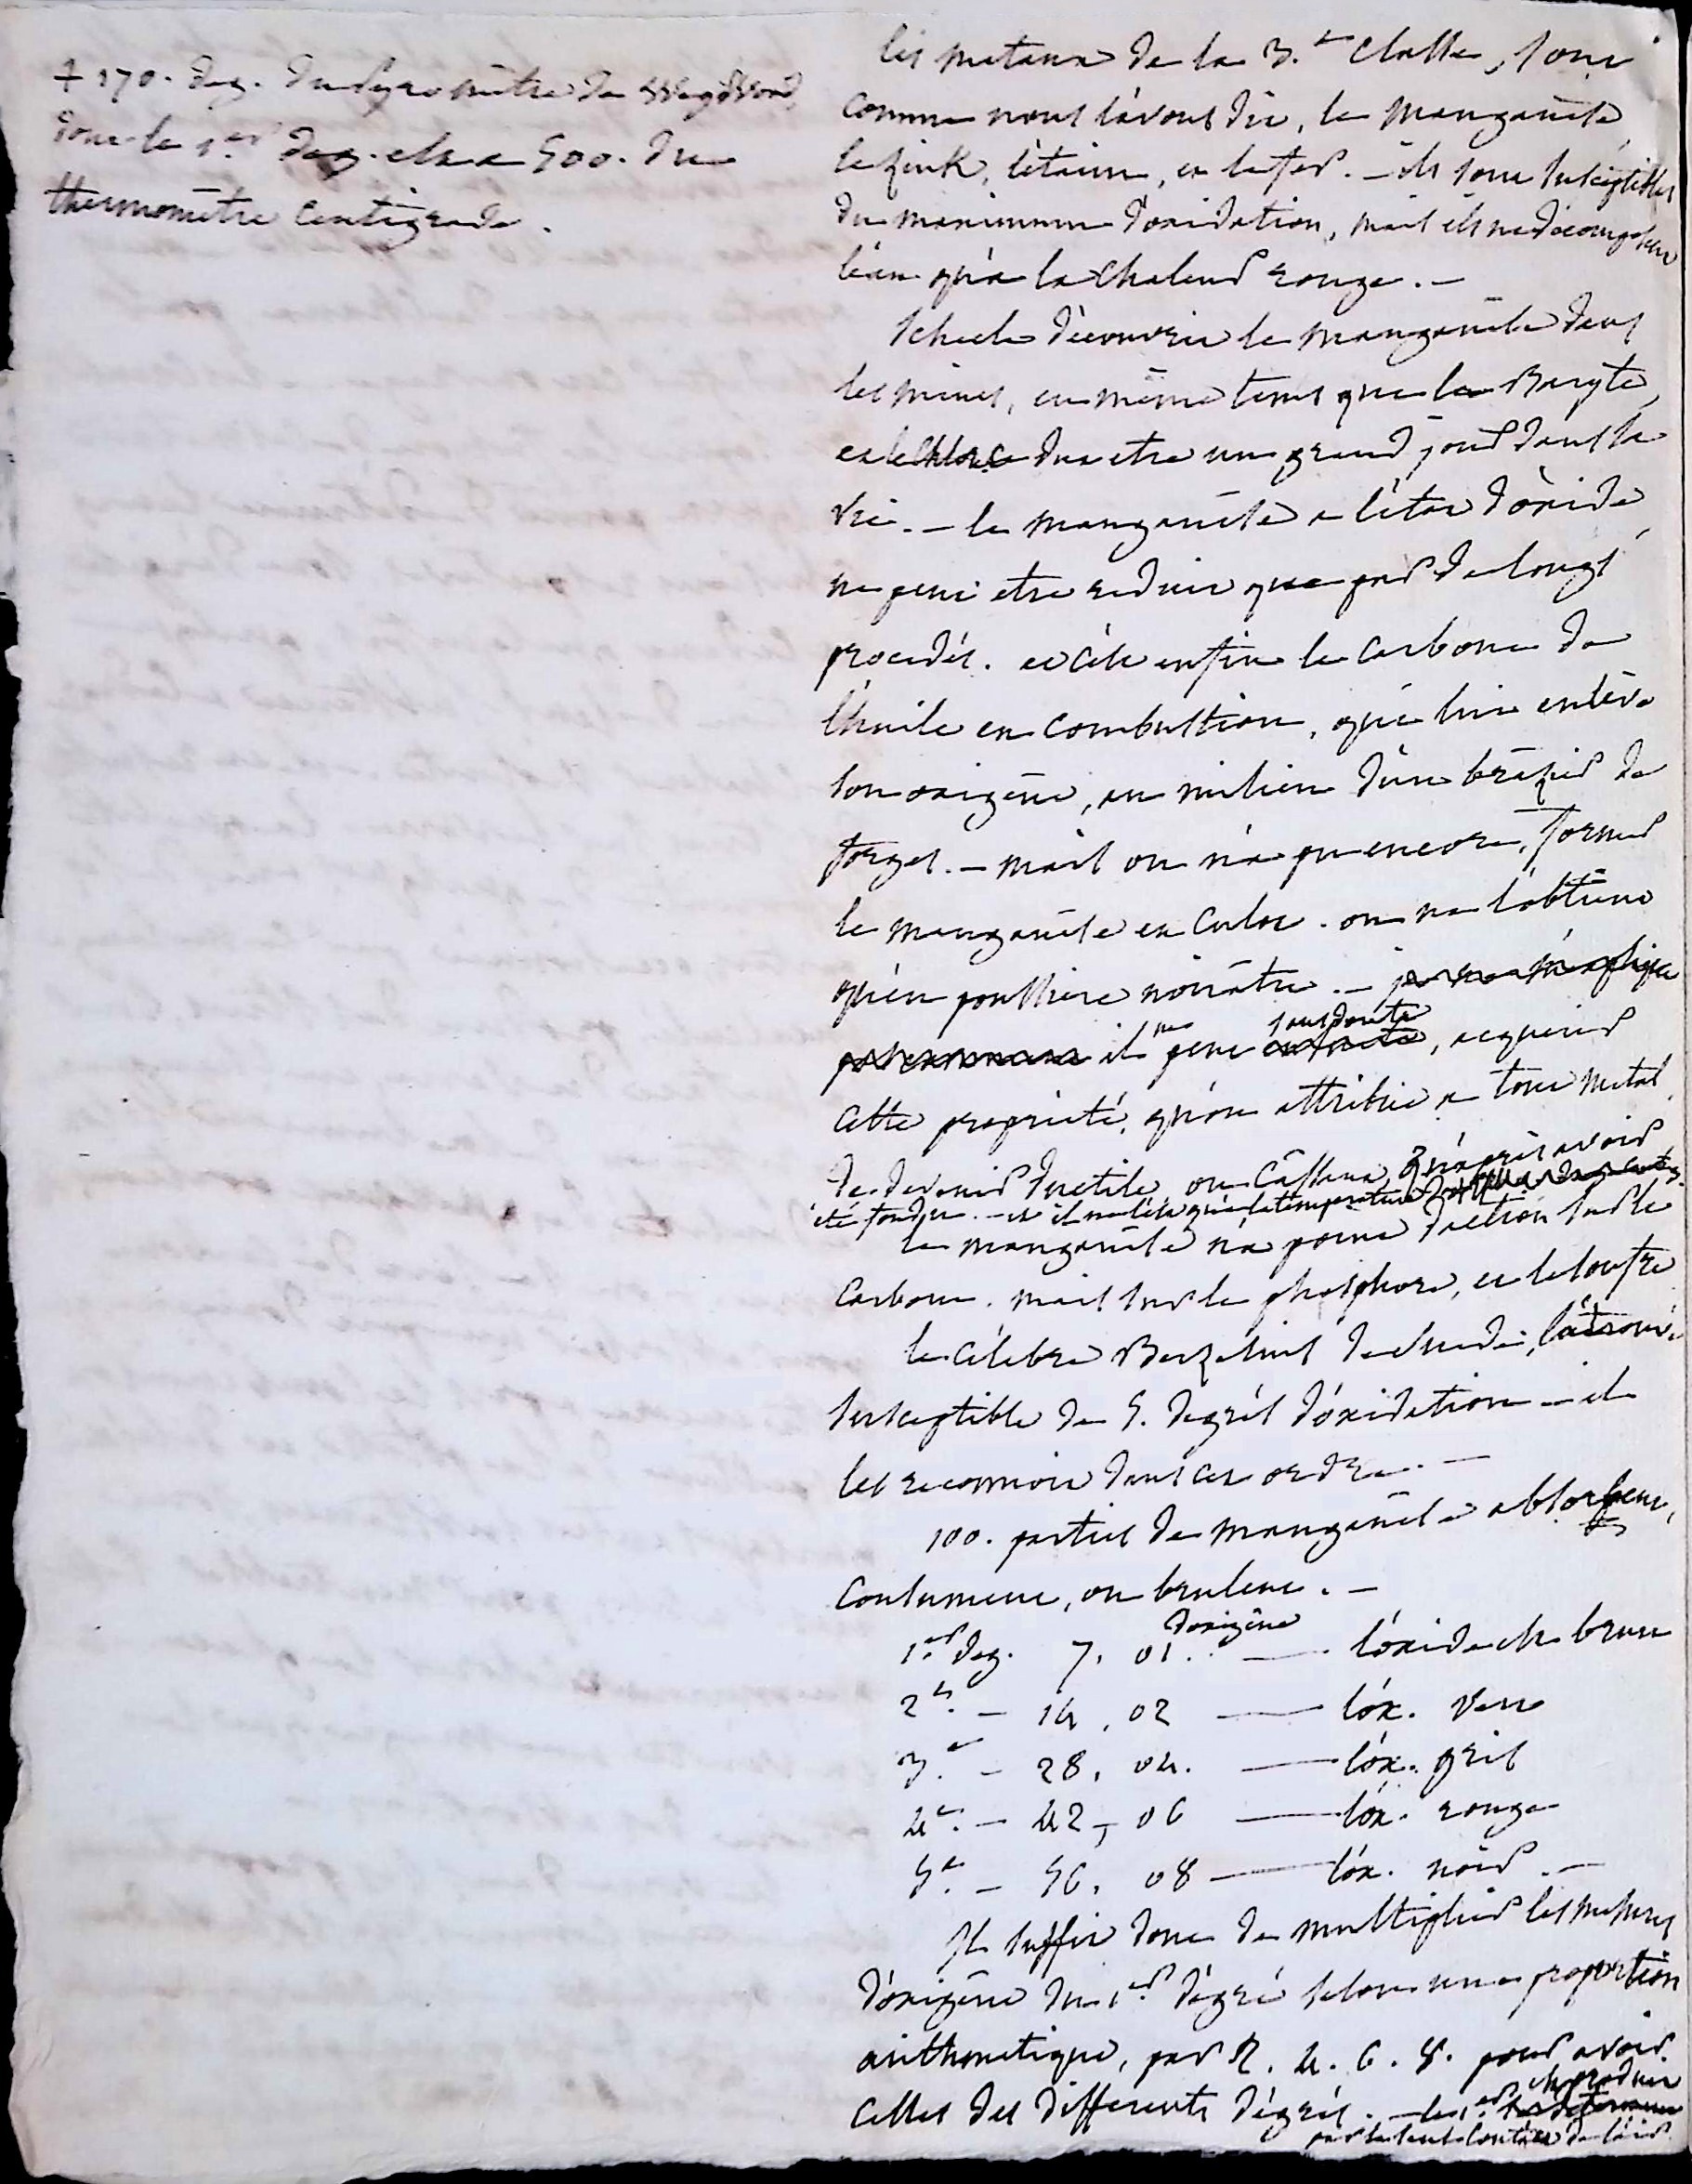 + 170. deg. du Pyromètre de Wegdwod,
dont le 1.er deg. est a 500. du
thermomètre centigrade.
les metaux de la 3.e classe, sont
comme nous l'avons dit, le manganèse
le zink, l'étain, et le fer. — ils sont susceptibles
du maximum d'oxidation, mais ils ne décomposent
l'eau qu'a la chaleur rouge. —
Schеele découvrit le manganèse dans
les mines, en même tems que la Baryte,
et le Chlore dut etre un grand jour dans sa
vie. — le manganèse a l'état d'oxide
ne peut etre reduit que par de longs
procedés. et c'est enfin le carbone de
l'huile en combustion, qui lui enlève
son oxigène, au milieu d'un brasier de
forges. — mais on n'a pu encore, former
le manganèse en culot. on ne l'obtient
qu'en poussiere noirâtre. —
il ne peut sans doute, acquerir
cette proprieté, qu'on attribue a tout metal,
de devenir ductile ou cassant, qu'après avoir
été fondu. — et il ne l'est qu'a la température
le manganèse n'a point d'action sur le
carbone. mais sur le phosphore, et le soufre
le célebre Berzelius de Suede, l'a trouvé
susceptible de 5. degrés d'oxidation — il
les reconnoit dans cet ordre. —
100. parties de manganèse absorbent,
consument, ou brulent. —
d'oxigène
1.er deg. 7. 01. — l'oxide est brun
2.e — 14, 02 — l'ox. vert
3.e — 28, 04. — l'ox. gris
4.e — 42, 06 — l'ox. rouge
5.e — 56, 08 — l'ox. noir. —
Il suffit donc de multiplier les mesures
d'oxigène du 1.er dégré selon une proportion
arithmetique, par 2. 4. 6. 8. pour avoir
celles des differents dégrés. — le 1.er est produit
par le seul contact de l'air.